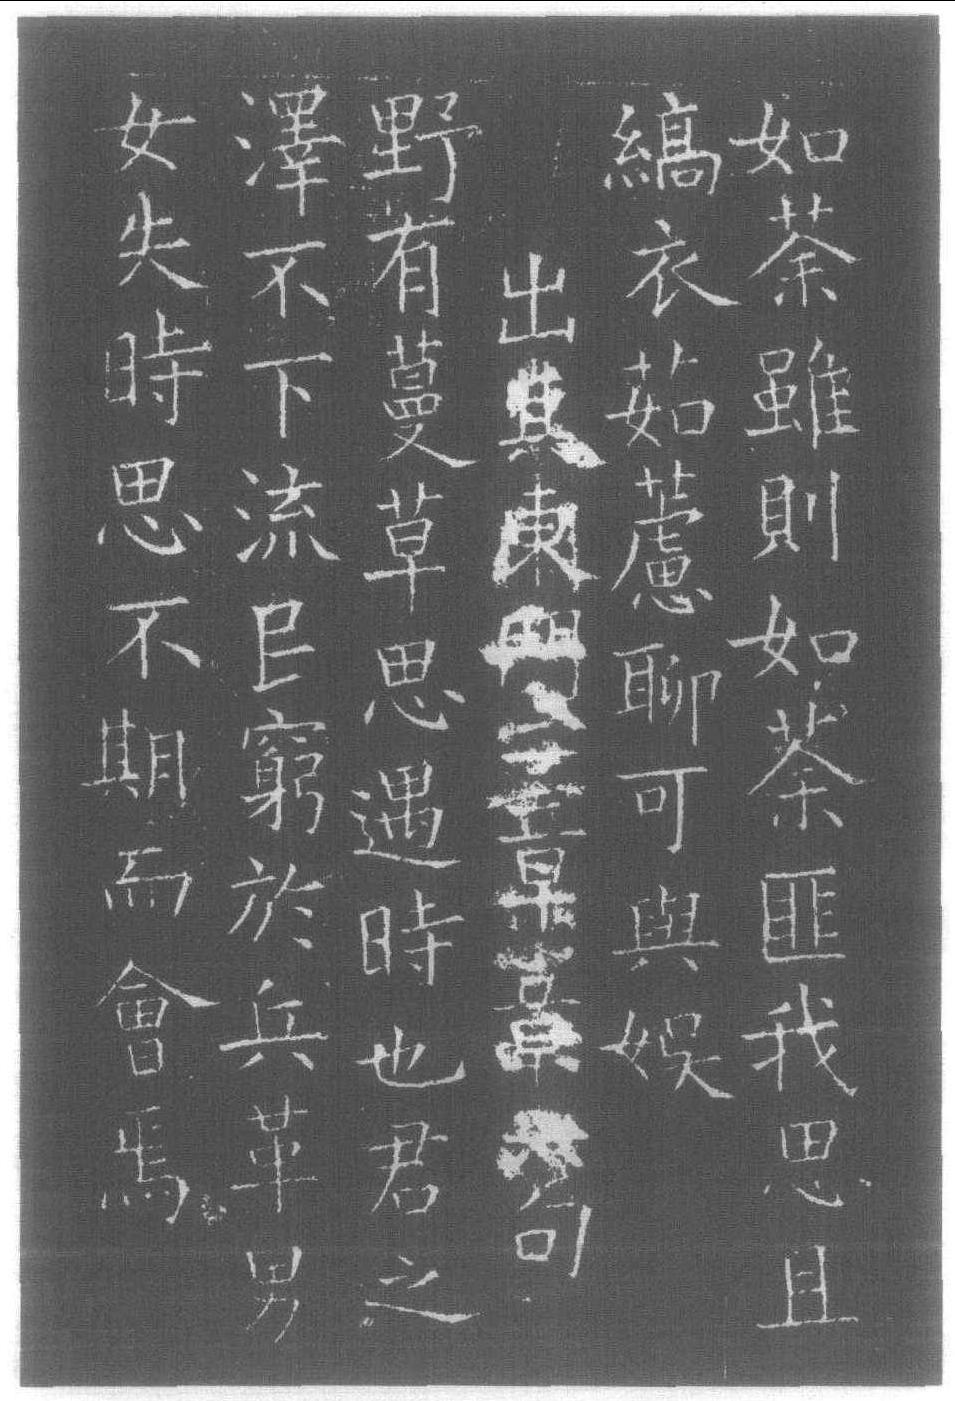 如荼雖則如荼匪我思且
縞衣茹藘聊可與娛
出其東門二章章句
野有蔓草思遇時也君之
澤不下流民窮於兵革男
女失時思不期而會焉